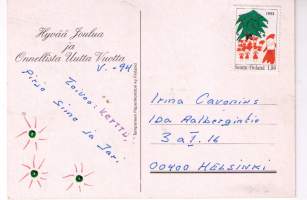 Hyvää Joulua
ja
Onnellista Uutta Vuotta
V. -94
Toivoo: Kerttu,
Pirjo Simo ja Jari
1993
Suomi Finland
1,80
Irina Cavonius
Ida Aalbergintie
3 a I. 16
00400 HELSINKI